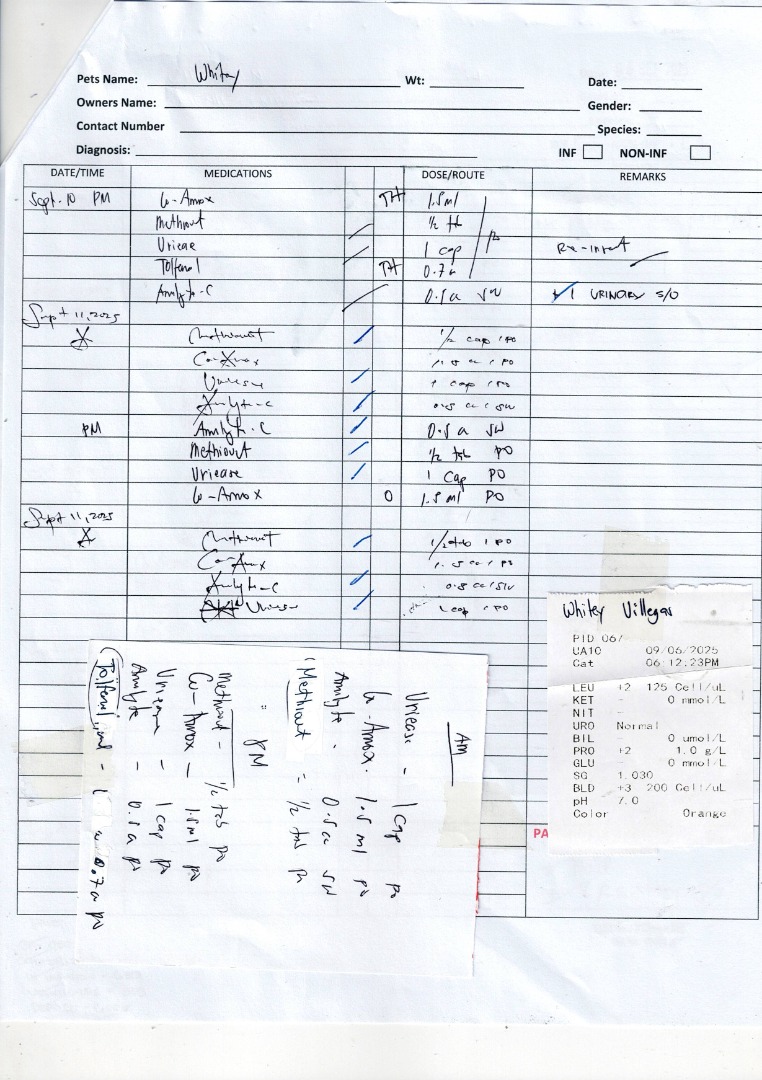 Pets Name: Whitey Wt: Date:
Owners Name: Gender:
Contact Number Species:
Diagnosis: INF NON-INF
DATE/TIME MEDICATIONS DOSE/ROUTE REMARKS
Sept. 10 PM Co-Amox TH 1.5ml
Methiout ½ tb
Uriease 1 cap PO
Tolfenol TH 0.7
Analyte-C 0.5 a SW +1 URINARY S/O
Sept 11, 2025
Methiout 1/2 cap / PO
Co-Amox 1.5 cc / PO
Uriease 1 cap / PO
Analyte-C 0.5 cc / SW
PM Analyte-C 0.5 a SW
Methiout ½ tab PO
Uriease 1 Cap PO
Co-Amox O 1.5 ml PO
Sept 11, 2025
Methiout 1/2 tab / PO
Co-Amox 1.5 cc / PO
Analyte-C 0.5 cc / SW
Uriease 1 cap / PO
Whitey Villegas
PID 067
UA10 09/06/2025
Cat 06:12:23PM
LEU +2 125 Cell/uL
KET - 0 mmol/L
NIT -
URO Normal
BIL - 0 umol/L
PRO +2 1.0 g/L
GLU - 0 mmol/L
SG 1.030
BLD +3 200 Cell/uL
pH 7.0
Color Orange
PA
AM
Uriease - 1 Cap PO
Co-Amox - 1.5 ml PO
Analyte - 0.5 a SW
Methiout = ½ tab PO
= PM
Methiout - ½ tab PO
Co-Amox - 1.5ml PO
Uriease - 1 cap PO
Analyte - 0.5 a PO
Tolfenol - 0.7 a PO